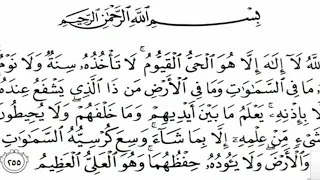 بِسْمِ ٱللَّهِ ٱلرَّحْمَٰنِ ٱلرَّحِيمِ
للَّهُ لَآ إِلَٰهَ إِلَّا هُوَ ٱلْحَىُّ ٱلْقَيُّومُ ۚ لَا تَأْخُذُهُۥ سِنَةٌ وَلَا نَوْمٌ
مَا فِى ٱلسَّمَٰوَٰتِ وَمَا فِى ٱلْأَرْضِ ۗ مَن ذَا ٱلَّذِى يَشْفَعُ عِندَهُ
ا بِإِذْنِهِۦ ۚ يَعْلَمُ مَا بَيْنَ أَيْدِيهِمْ وَمَا خَلْفَهُمْ ۖ وَلَا يُحِيطُونَ
شَىْءٍ مِّنْ عِلْمِهِۦٓ إِلَّا بِمَا شَآءَ ۚ وَسِعَ كُرْسِيُّهُ ٱلسَّمَٰوَٰتِ
وَٱلْأَرْضَ ۖ وَلَا يَـُٔودُهُۥ حِفْظُهُمَا ۚ وَهُوَ ٱلْعَلِىُّ ٱلْعَظِيمُ ٢٥٥